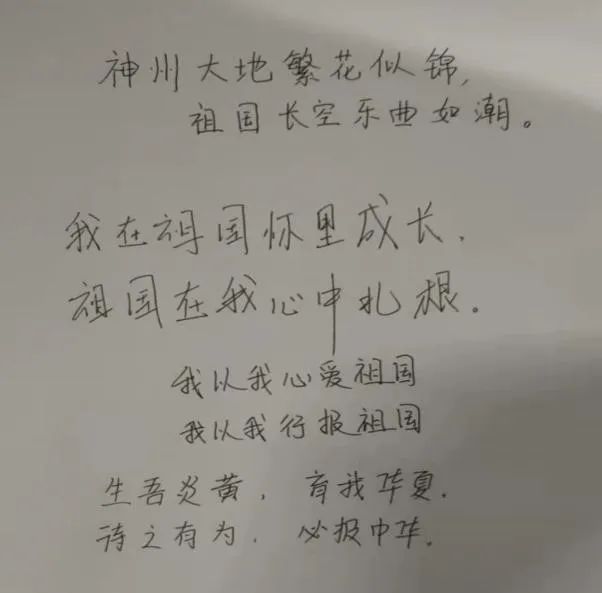 神州大地繁花似锦，
祖国长空乐曲如潮。
我在祖国怀里成长，
祖国在我心中扎根。
我以我心爱祖国
我以我行报祖国
生吾炎黄，育我华夏。
待之有为，必报中华。